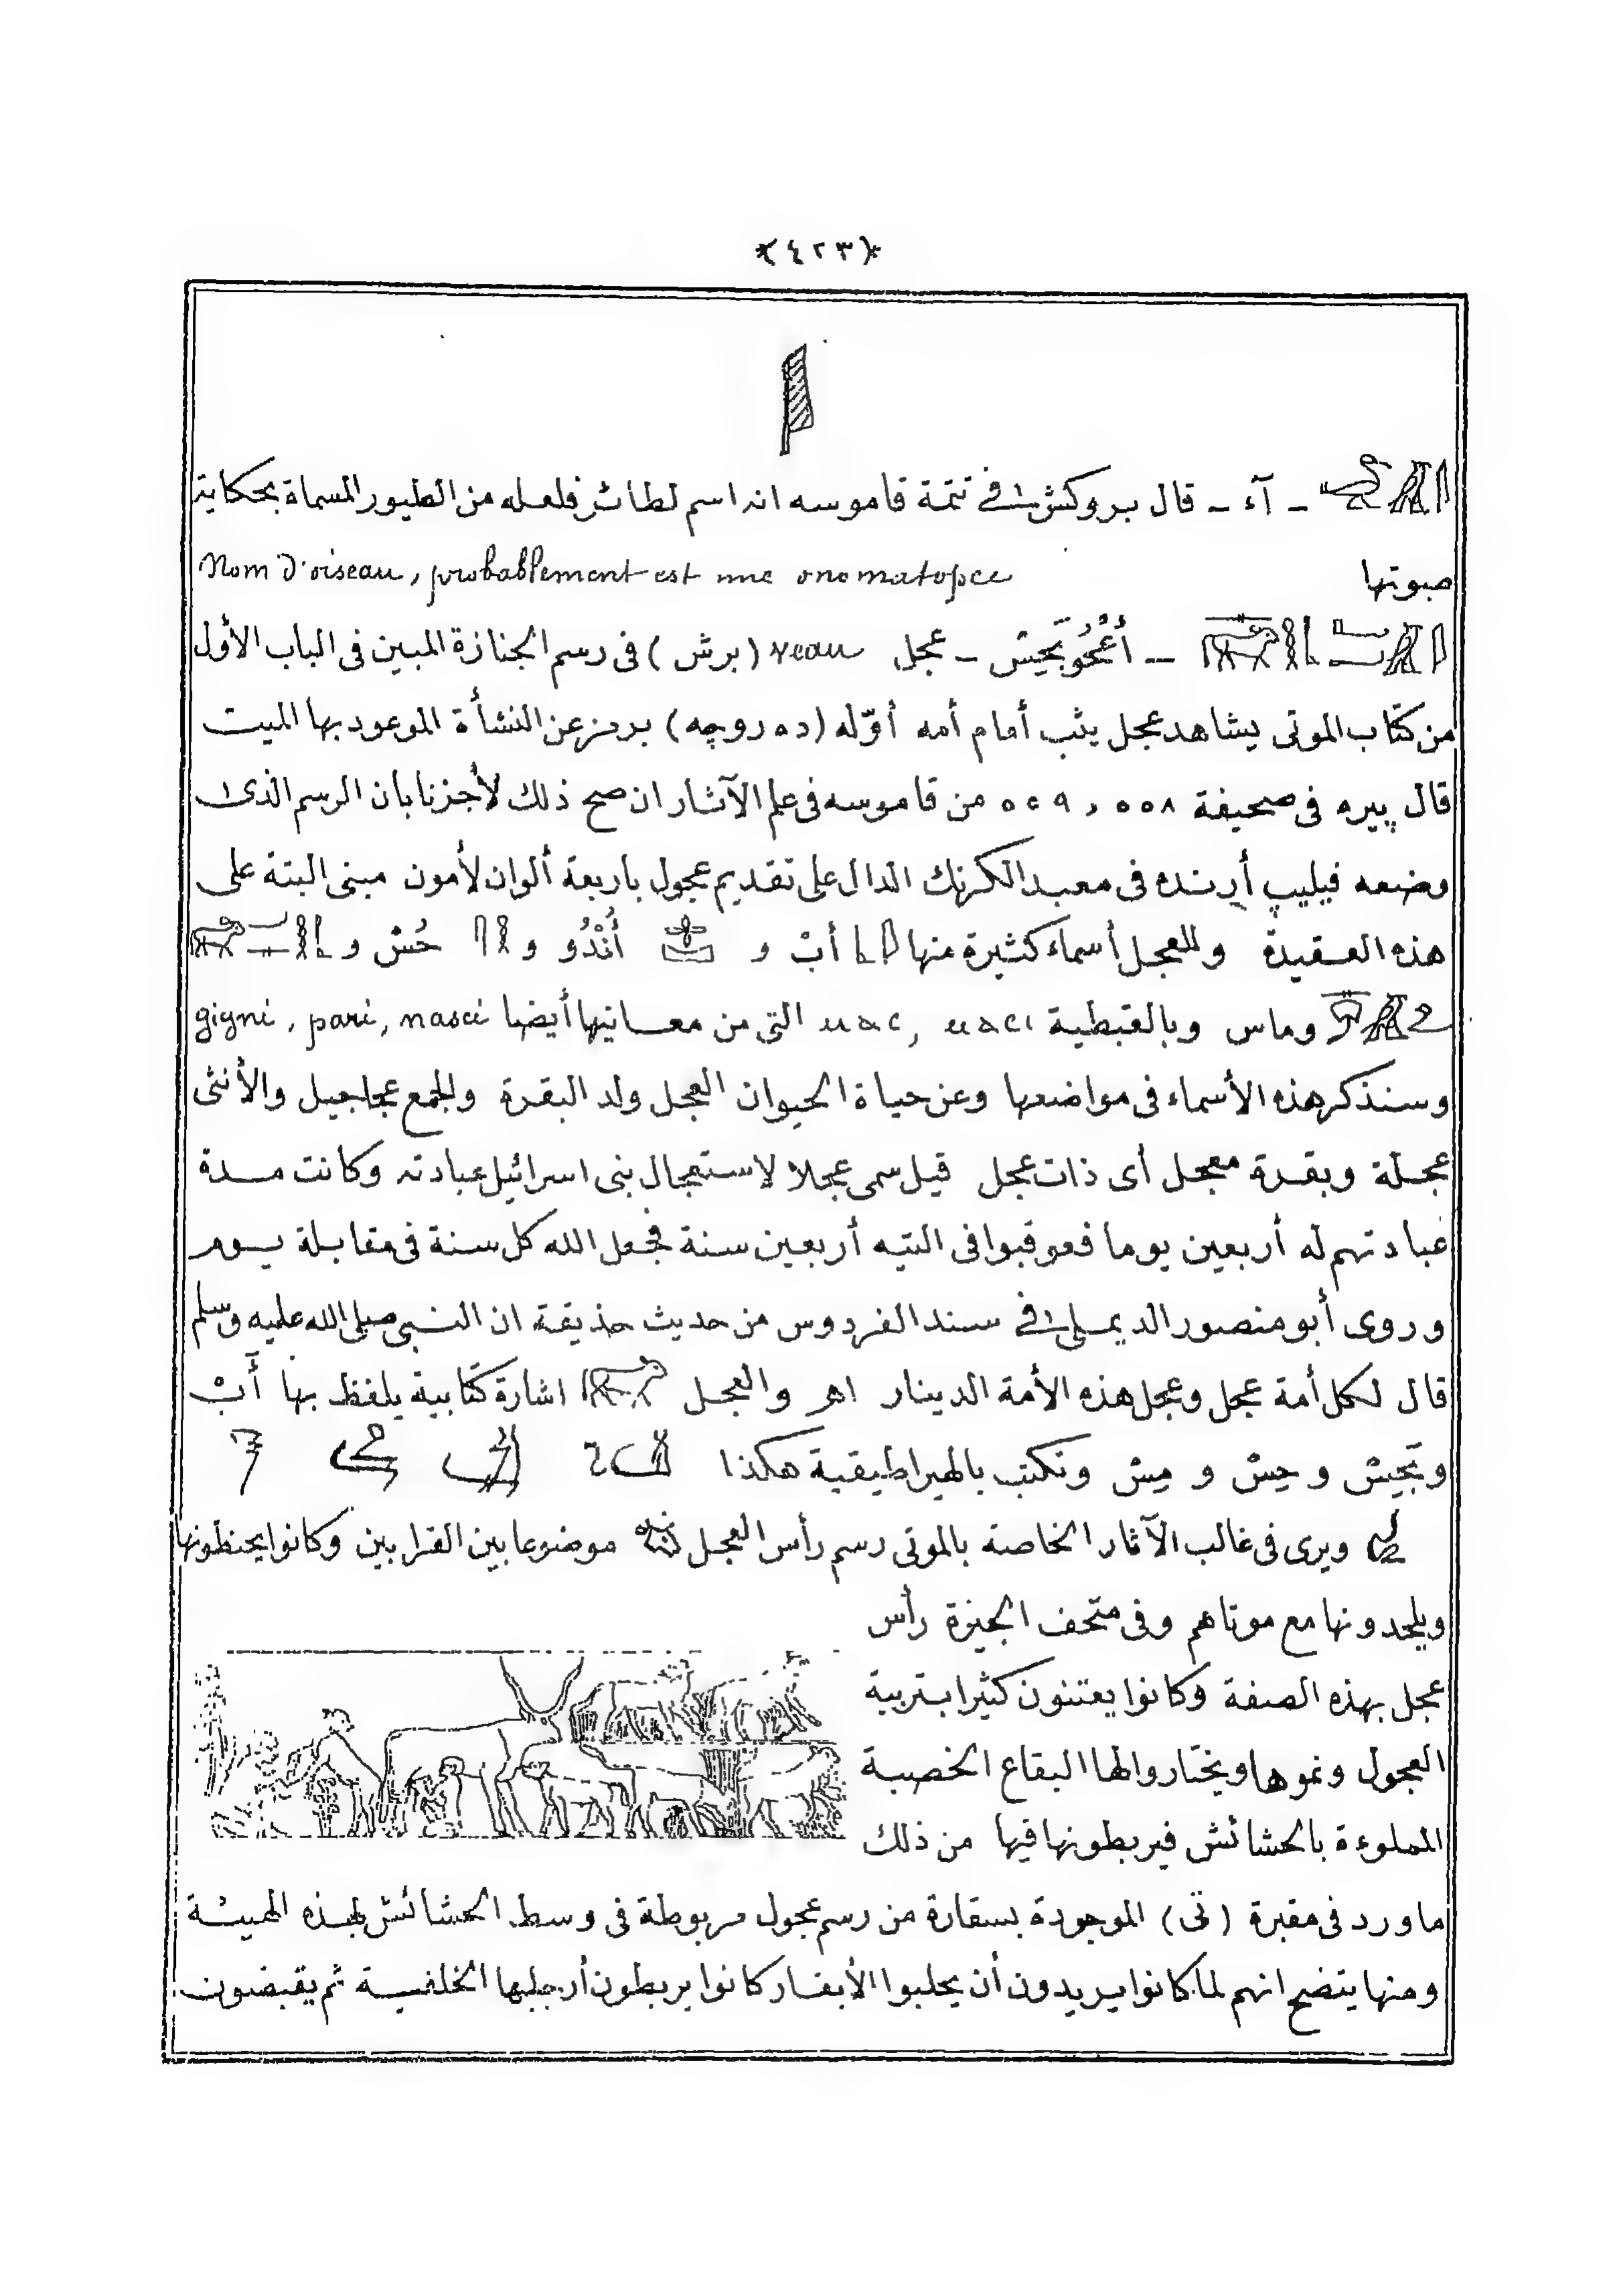 ﴿٤٢٣﴾
ـ آء ـ قال بروكش فى تتمة قاموسه انه اسم لطائر فلعله من الطيور المسماة بحكاية
صوتها Nom d'oiseau, probablement est une onomatopée
ـ عجل veau (برش) فى رسم الجنازة المبين فى الباب الأول
من كتاب الموتى يشاهد عجل يثب أمام أمه أوّله (ده روچه) برمز عن النشأة الموعود بها الميت
قال پيره فى صحيفة ٥٥٨ و ٥٥٩ من قاموسه فى علم الآثار ان صح ذلك لأجزنا بان الرسم الذى
وضعه فيليپ أرنده فى معبد الكرنك الدال على تقديم عجول باربعة ألوان لأمون مبنى البتة على
هذه العقيدة وللعجل أسماء كثيرة منها أبْ و أُنْدُو و حُسْ و
وماس وبالقبطية ⲙⲁⲥ, ⲙⲁⲥⲓ التى من معانيها أيضا gigni, pari, nasci
وسنذكر هذه الأسماء فى مواضعها وعن حياة الحيوان العجل ولد البقرة والجمع عجاجيل والأنثى
عجلة وبقرة معجل أى ذات عجل قيل سمى عجلا لاستعجال بنى اسرائيل عبادته وكانت مدة
عبادتهم له أربعين يوما فعوقبوا فى التيه أربعين سنة فجعل الله كل سنة فى مقابلة يوم
وروى أبو منصور الديملى فى سند الفردوس من حديث حذيفة ان النبى صلى الله عليه وسلم
قال لكل أمة عجل وعجل هذه الأمة الدينار اهـ والعجل اشارة كتابية يلفظ بها أَبْ
وبَحِيسْ و حِسْ و مِسْ وتكتب بالهيراطيقية هكذا
ويرى فى غالب الآثار الخاصة بالموتى رسم رأس العجل موضوعا بين القرابين وكانوا يحنطونها
ويلحدونها مع موتاهم وفى متحف الجيزة رأس
عجل بهذه الصفة وكانوا يعتنون كثيرا بتربية
العجول ونموها ويختاروا لها البقاع الخصبة
المملوءة بالحشائش فيربطونها فيها من ذلك
ما ورد فى مقبرة (تى) الموجودة بسقارة من رسم عجول مربوطة فى وسط الحشائش بهذه الهيئة
ومنها يتضح انهم لما كانوا يريدون أن يحلبوا الأبقار كانوا يربطون أرجلها الخلفية ثم يقبضون